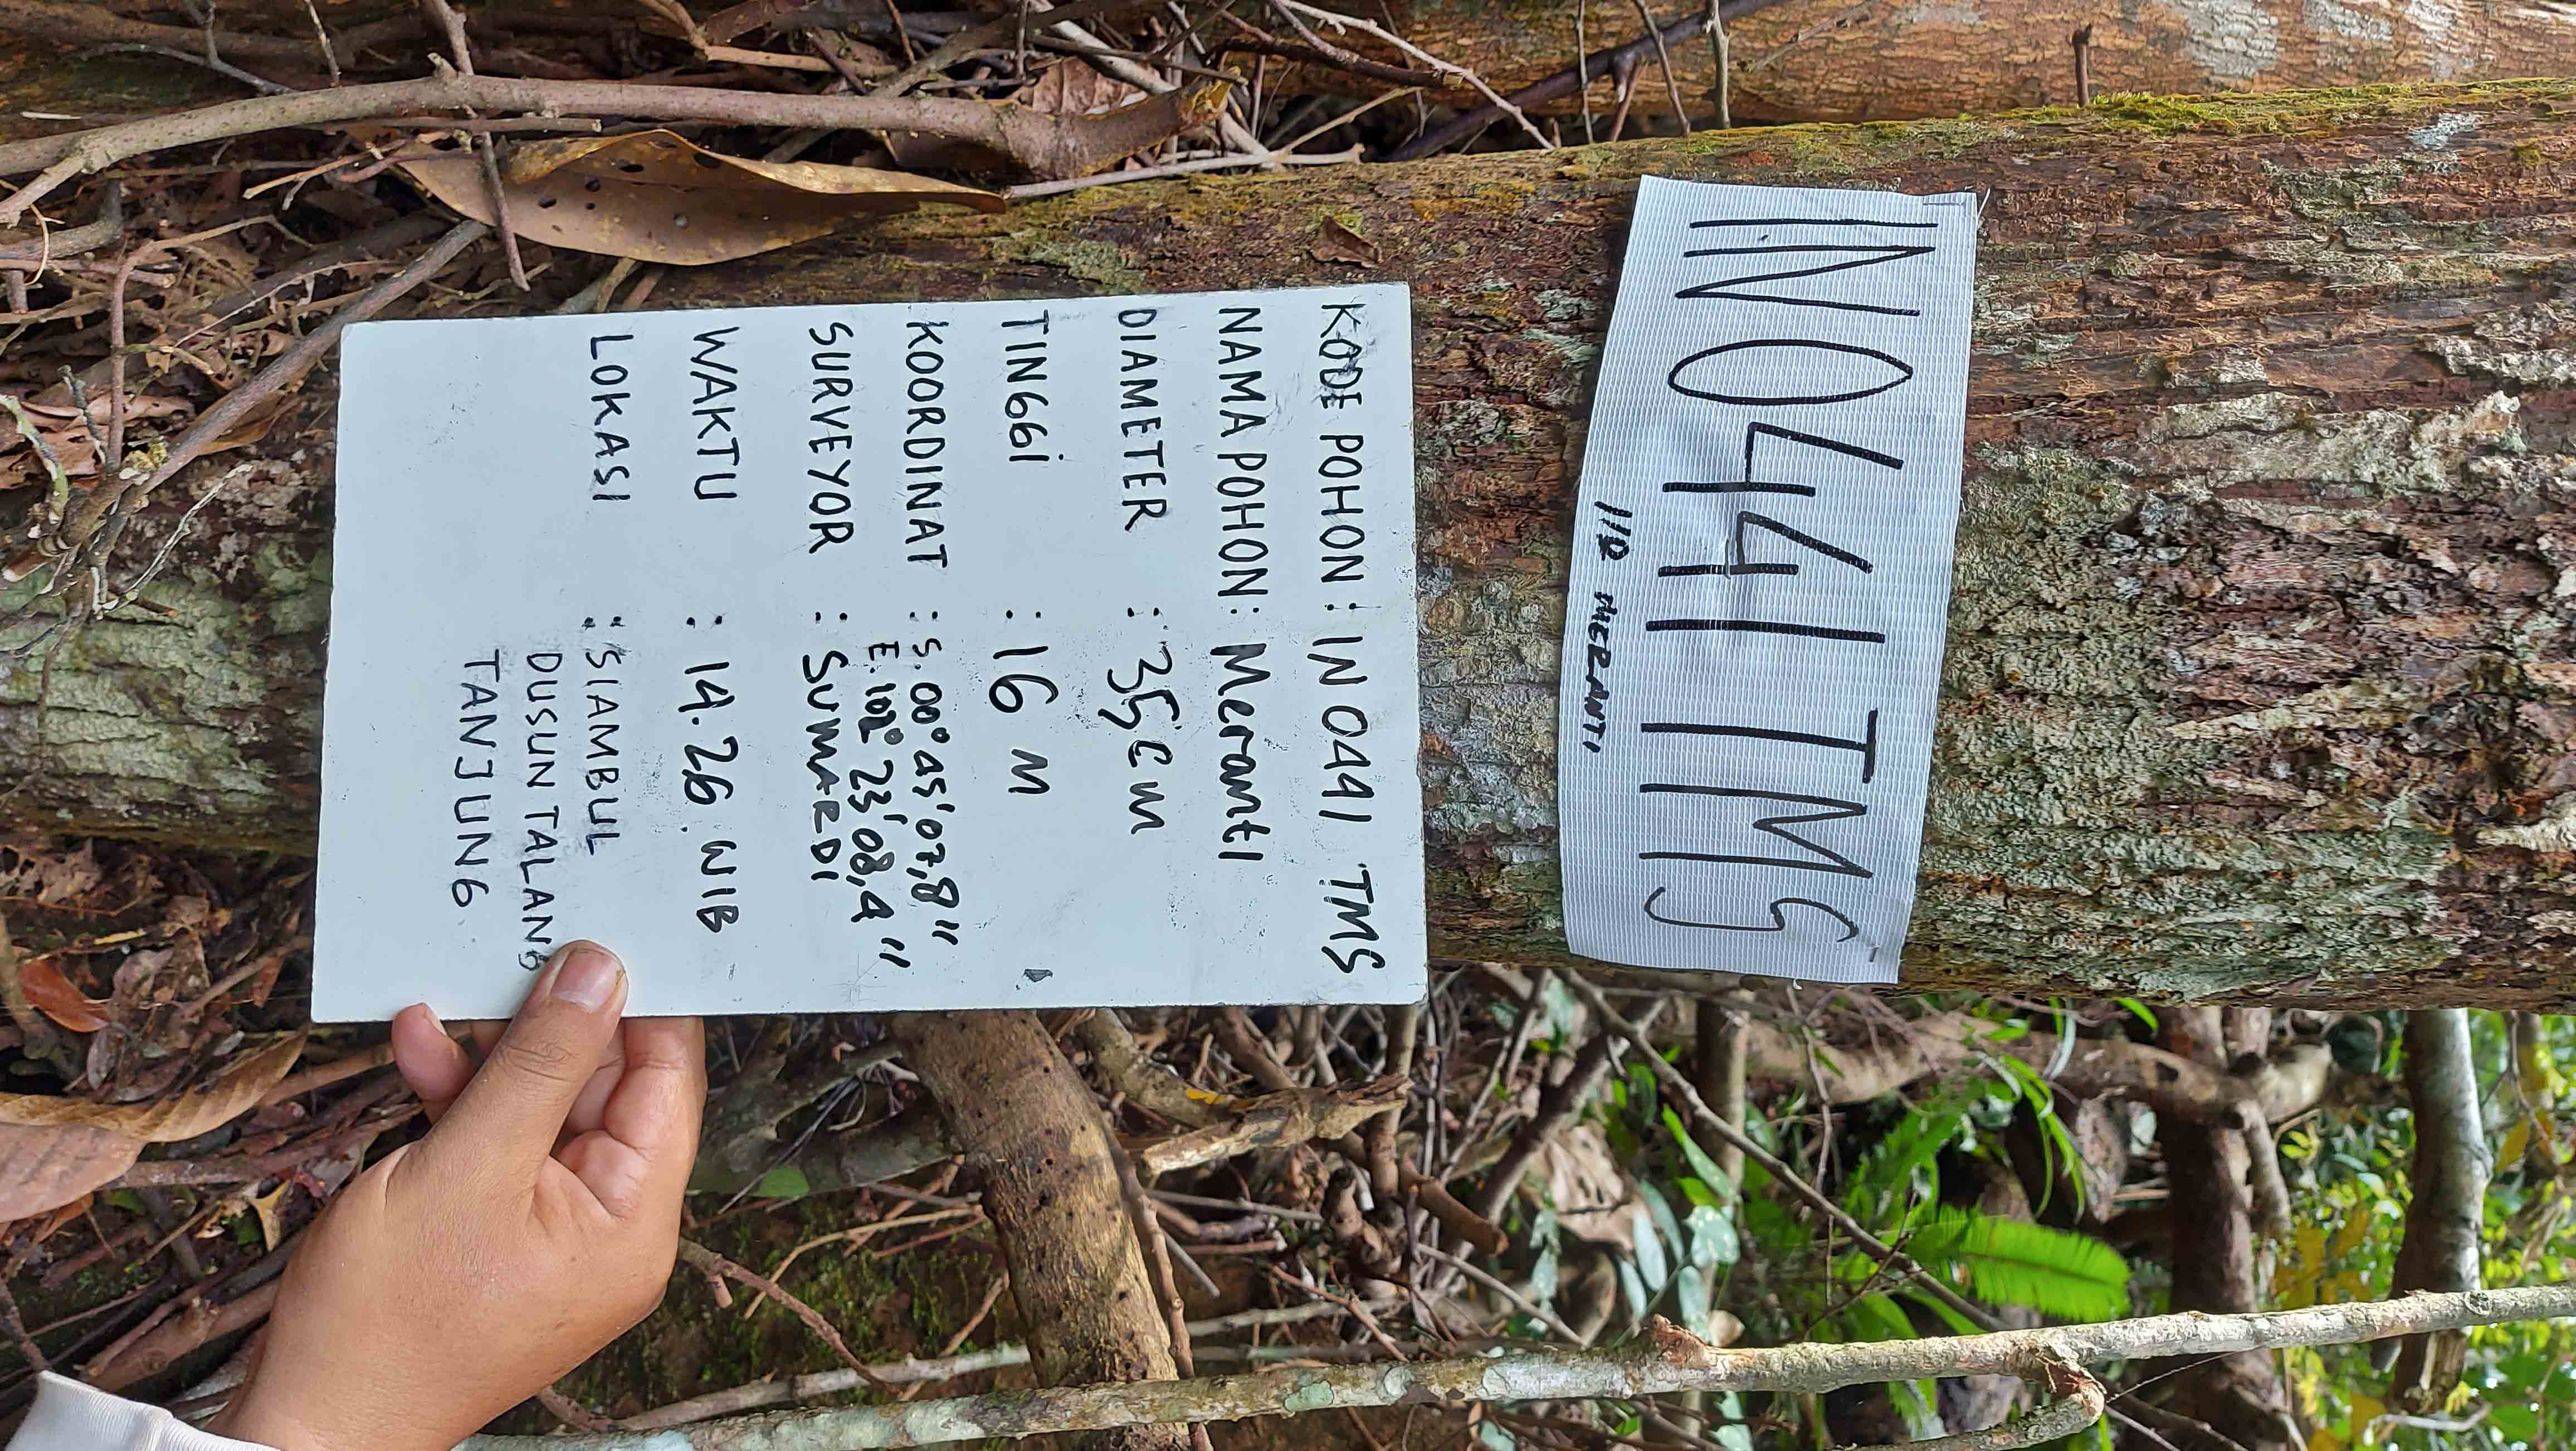 IN0441 TMS
110 MERANTI
KODE POHON : IN 0441 TMS
NAMA POHON : Meranti
DIAMETER : 35 cm
TINGGi : 16 M
KOORDINAT : S. 00° 45' 07,8"
E. 102° 23' 08,4"
SURVEYOR : SUMARDI
WAKTU : 14.26 WIB
LOKASI : SIAMBUL
DUSUN TALANG
TANJUNG